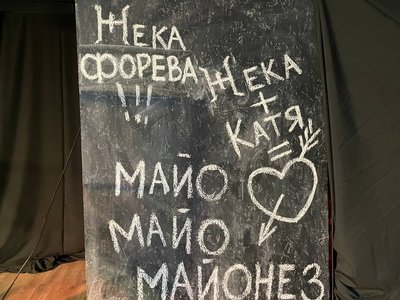 Жека
форева
!!!
Жека
+
Катя
=
МАЙО
МАЙО
МАЙОНЕЗ